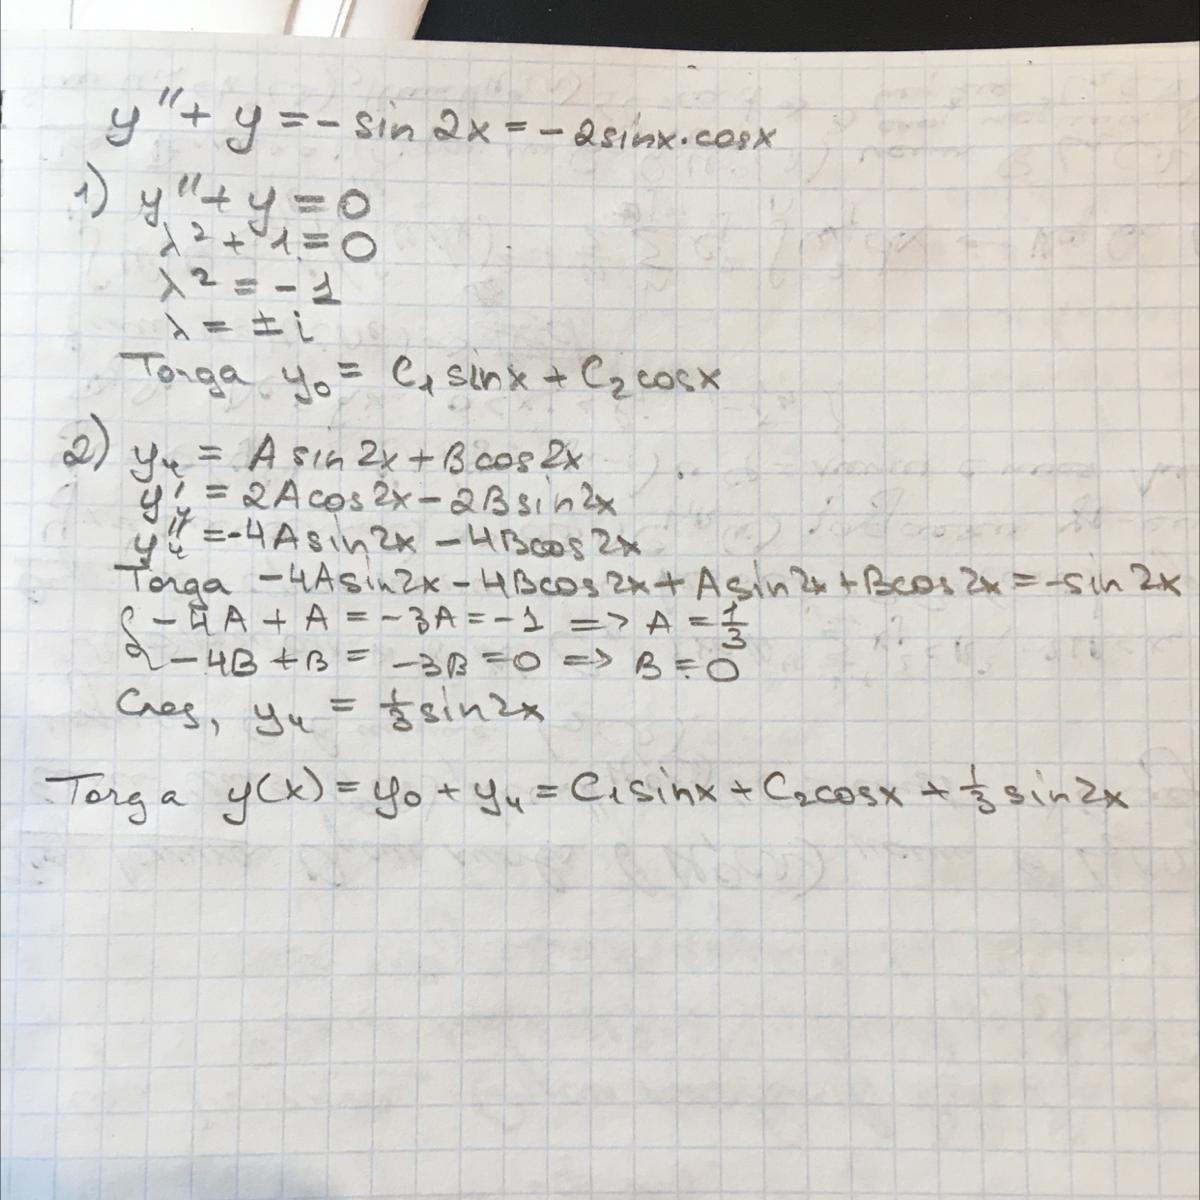 y'' + y = - sin 2x = - 2sinx·cosx
1) y'' + y = 0
λ² + 1 = 0
λ² = - 1
λ = ± i
Тогда y₀ = C₁ sinx + C₂ cosx
2) yч = A sin 2x + B cos 2x
y'ч = 2A cos 2x - 2B sin 2x
y''ч = -4A sin 2x - 4B cos 2x
Тогда -4A sin 2x - 4B cos 2x + A sin 2x + B cos 2x = - sin 2x
{ - 4A + A = - 3A = - 1 => A = 1/3
- 4B + B = - 3B = 0 => B = 0
След, yч = 1/3 sin 2x
Тогда y(x) = y₀ + yч = C₁ sinx + C₂ cosx + 1/3 sin 2x